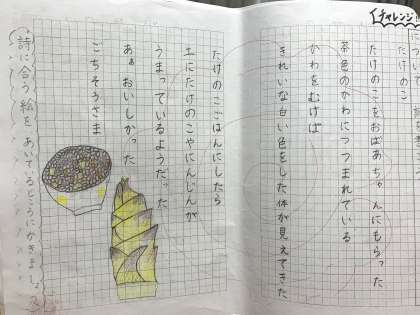 チャレンジ
について
たけのこ
たけのこをおばあちゃんにもらった
茶色のかわにつつまれている
かわをむけば
きれいな白い色をした体が見えてきた
たけのこごはんにしたら
土にたけのこやにんじんが
うまっているようだった
あぁおいしかった
ごちそうさま
詩に合う絵をあいているところにかきましょう